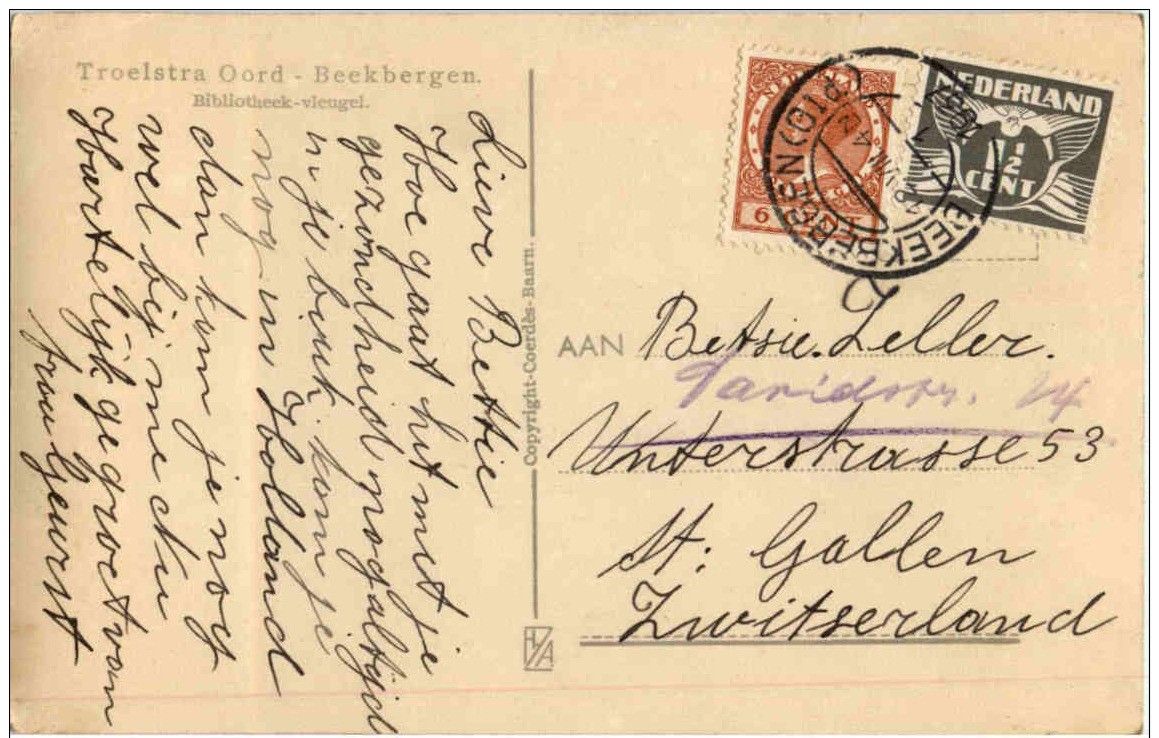 Troelstra Oord - Beekbergen.
Bibliotheek-vleugel.
Lieve Bettie
Hoe gaat het met je
gezondheid nog altijd
in je beuk. kom je
nog in Holland
dan kom je nog
wel bij me etn
Hartelijk gegroet van
frau Geurst
Copyright-Coerdès-Baarn.
NEDERLAND
1½
CENT
6
BEEKBERGEN
AAN Betsie. Zeller.
Davidstr. 24
Unterstrasse 53
St. Gallen
Zwitserland